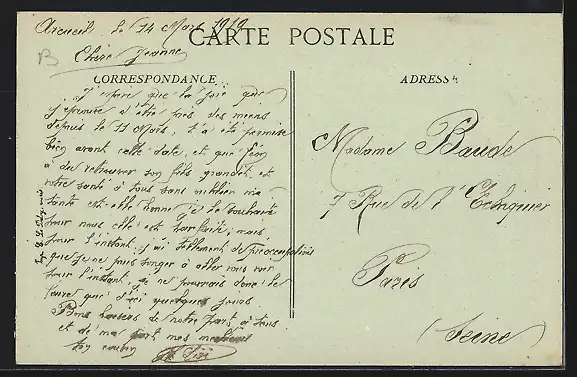 Arcueil, le 14 Mars 1919
CARTE POSTALE
Chère Jeanne
CORRESPONDANCE
ADRESSE
J'espère que la joie que
j'éprouve d'être près des miens
depuis le 11 Mars, t'a été permise
bien avant cette date, et que Léon
a du retrouver son fils grandet, et
votre santé à tous sans oublier ma
tante est elle bonne, je le souhaite
pour nous elle est parfaite; mais
pour l'instant j'ai tellement de préoccupations
que je ne puis songer à aller vous voir
pour l'instant, je ne pourrais donc le
faire que d'ici quelques jours.
Bons baisers de notre part à tous
et de ma part mes meilleurs
ton cousin
Madame Baude
7 Rue de l'Echiquier
Paris
(Seine)